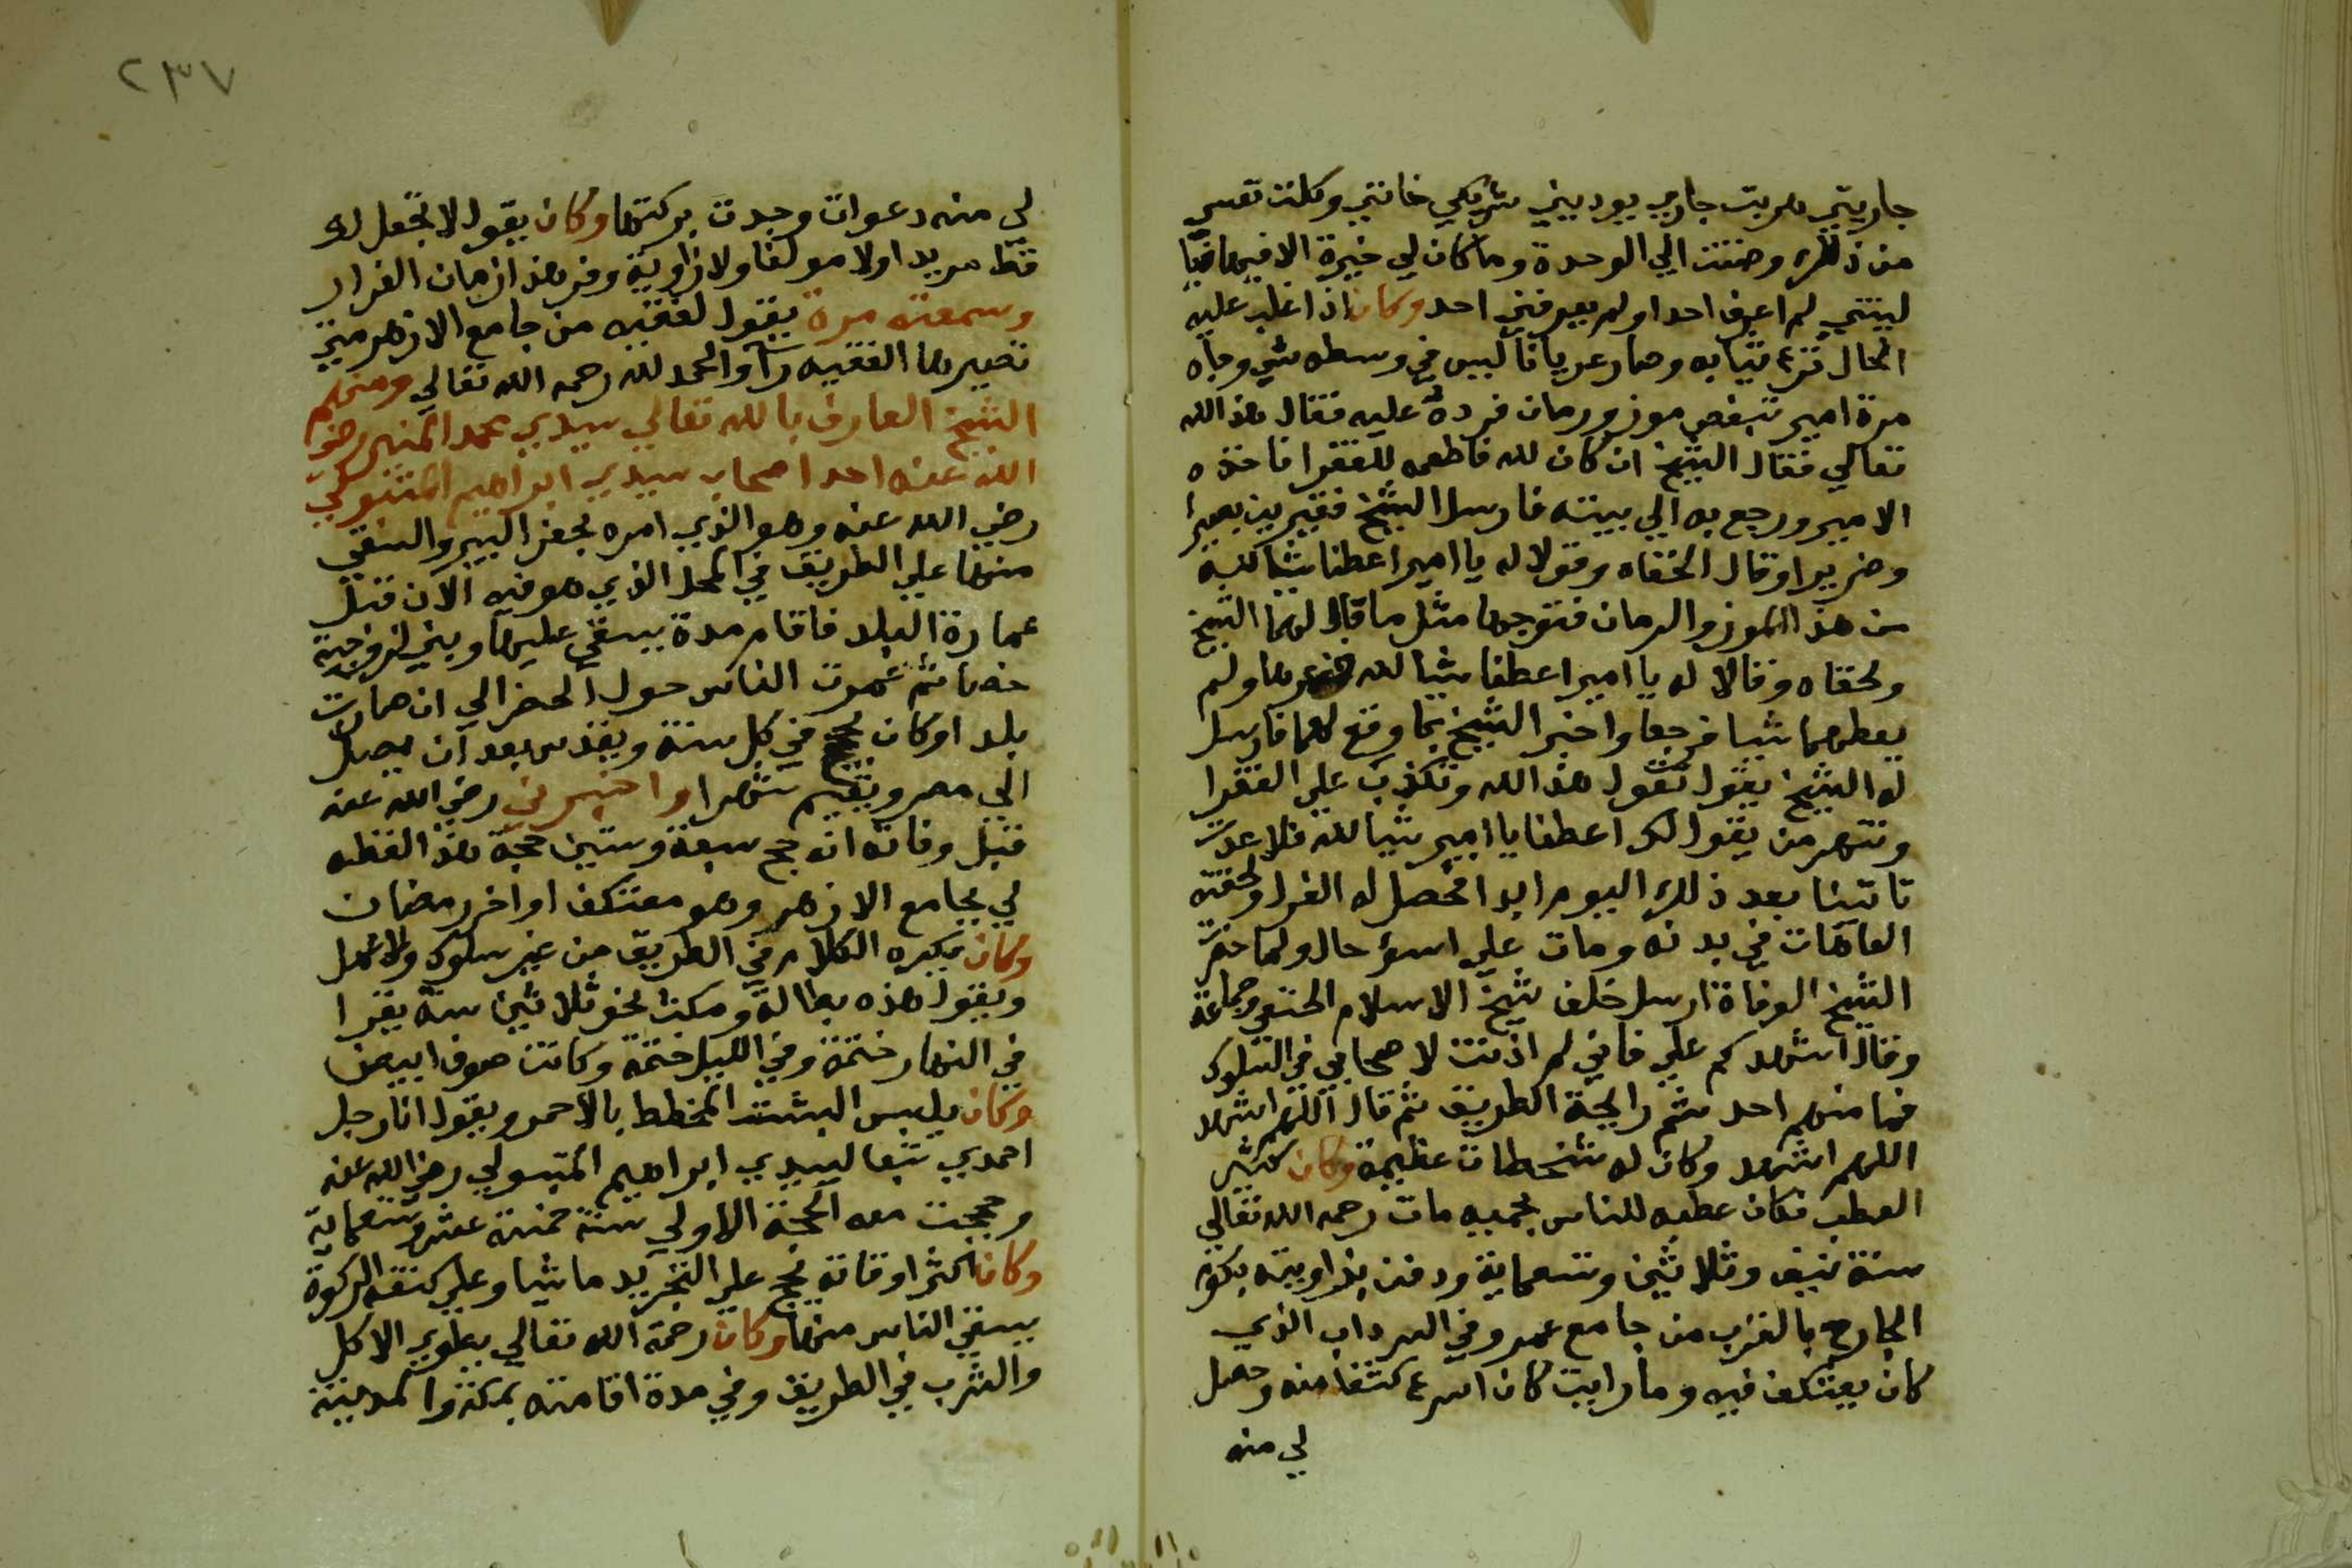 جاريتي هربت جاري يوديني شريكي خانني وكلت نفسي
من ذلك وحننت الي الوحدة وما كان لي خيرة الا فيها فيا
ليتني لم اعرف احدا ولم يعرفني احد وكان اذا غلب عليه
الحال نزع ثيابه وصار عريانا ليس في وسطه شي وجاه
مرة امير بقفص موز ورمان فرده عليه فقال هذا لله
تعالي فقال الشيخ ان كان لله فاطعمه للفقرا فاخذه
الامير ورجع به الي بيته فارسل الشيخ فقيرين بصيرا
وضريرا وقال الحقاه وقولا له يا امير اعطنا شيا لله
من هذا الموز والرمان فتوجها مثل ما قال لهما الشيخ
ولحقاه وقالا له يا امير اعطنا شيا لله فنهرهما ولم
يعطهما شيا فرجعا واخبرا الشيخ بما وقع لهما فارسل
له الشيخ يقول تقول هذا لله وتكذب علي الفقرا
وتنهر من يقول لك اعطنا يا امير شيا لله فلا عدت
تاتينا بعد ذلك اليوم ابدا فحصل له العزل ولحقته
العاهات في بدنه ومات علي اسوء حال ولما حضرت
الشيخ الوفاة ارسل خلف شيخ الاسلام الحنفي وجماعة
وقال اشهدكم علي فاني لم اذنت لاصحابي في السلوك
فما منهم احد شم رايحة الطريق ثم قال اللهم اشهد
اللهم اشهد وكان له شطحات عظيمة وكان كثير
العطب فكان عطبه للناس بجميه مات رحمه الله تعالي
سنة نيف وثلاثين وتسعماية ودفن بزاويته بكوم
الجارح بالقرب من جامع عمرو في السرداب الذي
كان يعتكف فيه وما رايت كان اسرع كشفا منه وحصل
لي منه
٢٣٧
لي منه دعوات وجدت بركتها وكان يقول لا تجعل لك
قط مريدا ولا مولفا ولا زاوية وفر هذا زمان الفرار
وسمعته مرة يقول لفقيه من جامع الازهر متي
تصير هاء الفقيه راء والحمد لله رحمه الله تعالي ومنهم
الشيخ العارف بالله تعالي سيدي محمد المنير رضي
الله عنه احد اصحاب سيدي ابراهيم المتبولي
رضي الله عنه وهو الذي امره بحفر البير والسقي
منها علي الطريق في المحل الذي هو فيه الان قبل
عمارة البلد فاقام مدة يسقي عليها وبني لزوجته
خصا ثم عمرت الناس حول الخص الي ان صارت
بلدا وكان يحج في كل سنة ويقدس بعد ان يصل
الي مصر ويقيم شهرا واخبرني رضي الله عنه
قبل وفاته انه حج سبعة وستين حجة هذا لفظه
لي بجامع الازهر وهو معتكف اواخر رمضان
وكان يكره الكلام في الطريق من غير سلوك ولا عمل
ويقول هذه بطالة ومكث نحو ثلاثين سنة يقرا
في النهار ختمة وفي الليل ختمة وكانت صوف ابيض
وكان يلبس البشت المخطط بالاحمر ويقول انا رجل
احمدي تبعا لسيدي ابراهيم المتبولي رضي الله عنه
وحججت معه الحجة الاولي سنة خمسة عشر وتسعماية
وكان اكثر اوقاته يحج علي التجريد ماشيا وعلي كتفه الركوة
يسقي الناس منها وكان رحمة الله تعالي يطوي الاكل
والشرب في الطريق وفي مدة اقامته بمكة والمدينة